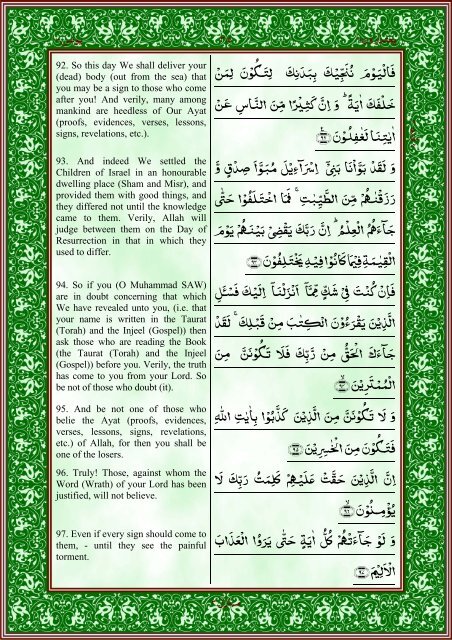 92. So this day We shall deliver your
(dead) body (out from the sea) that
you may be a sign to those who come
after you! And verily, many among
mankind are heedless of Our Ayat
(proofs, evidences, verses, lessons,
signs, revelations, etc.).
فَالْيَوْمَ نُنَجِّيْكَ بِبَدَنِكَ لِتَكُوْنَ لِمَنْ
خَلْفَكَ اٰيَةً ؕ وَ اِنَّ كَثِيْرًا مِّنَ النَّاسِ عَنْ
اٰيٰتِنَا لَغٰفِلُوْنَ
93. And indeed We settled the
Children of Israel in an honourable
dwelling place (Sham and Misr), and
provided them with good things, and
they differed not until the knowledge
came to them. Verily, Allah will
judge between them on the Day of
Resurrection in that in which they
used to differ.
وَ لَقَدْ بَوَّاْنَا بَنِيْۤ اِسْرَآءِيْلَ مُبَوَّاَ صِدْقٍ وَّ
رَزَقْنٰهُمْ مِّنَ الطَّيِّبٰتِ ۚ فَمَا اخْتَلَفُوْا حَتّٰى
جَآءَهُمُ الْعِلْمُ ؕ اِنَّ رَبَّكَ يَقْضِيْ بَيْنَهُمْ يَوْمَ
الْقِيٰمَةِ فِيْمَا كَانُوْا فِيْهِ يَخْتَلِفُوْنَ
94. So if you (O Muhammad SAW)
are in doubt concerning that which
We have revealed unto you, (i.e. that
your name is written in the Taurat
(Torah) and the Injeel (Gospel)) then
ask those who are reading the Book
(the Taurat (Torah) and the Injeel
(Gospel)) before you. Verily, the truth
has come to you from your Lord. So
be not of those who doubt (it).
فَاِنْ كُنْتَ فِيْ شَكٍّ مِّمَّاۤ اَنْزَلْنَاۤ اِلَيْكَ فَسْـَٔلِ
الَّذِيْنَ يَقْرَءُوْنَ الْكِتٰبَ مِنْ قَبْلِكَ ۚ لَقَدْ
جَآءَكَ الْحَقُّ مِنْ رَّبِّكَ فَلَا تَكُوْنَنَّ مِنَ
الْمُمْتَرِيْنَ
95. And be not one of those who
belie the Ayat (proofs, evidences,
verses, lessons, signs, revelations,
etc.) of Allah, for then you shall be
one of the losers.
وَ لَا تَكُوْنَنَّ مِنَ الَّذِيْنَ كَذَّبُوْا بِاٰيٰتِ اللّٰهِ
فَتَكُوْنَ مِنَ الْخٰسِرِيْنَ
96. Truly! Those, against whom the
Word (Wrath) of your Lord has been
justified, will not believe.
اِنَّ الَّذِيْنَ حَقَّتْ عَلَيْهِمْ كَلِمَتُ رَبِّكَ لَا
يُؤْمِنُوْنَ
97. Even if every sign should come to
them, - until they see the painful
torment.
وَ لَوْ جَآءَتْهُمْ كُلُّ اٰيَةٍ حَتّٰى يَرَوُا الْعَذَابَ
الْاَلِيْمَ